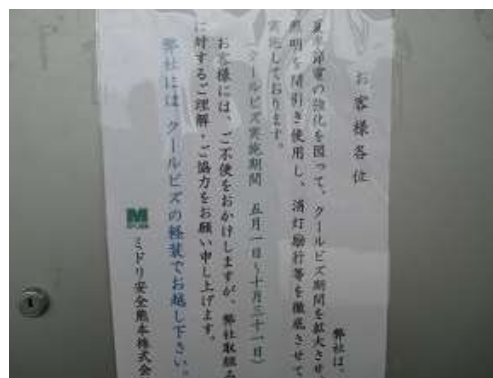 お客様各位
弊社は、
夏季節電の強化を図って、クールビズ期間を拡大させ
照明を間引き使用し、消灯励行等を徹底させて、
実施しております。
(クールビズ実施期間 五月一日~十月三十一日)
お客様には、ご不便をおかけしますが、弊社取組み
に対するご理解・ご協力をお願い申し上げます。
弊社には、クールビズの軽装でお越し下さい。
ミドリ安全熊本株式会